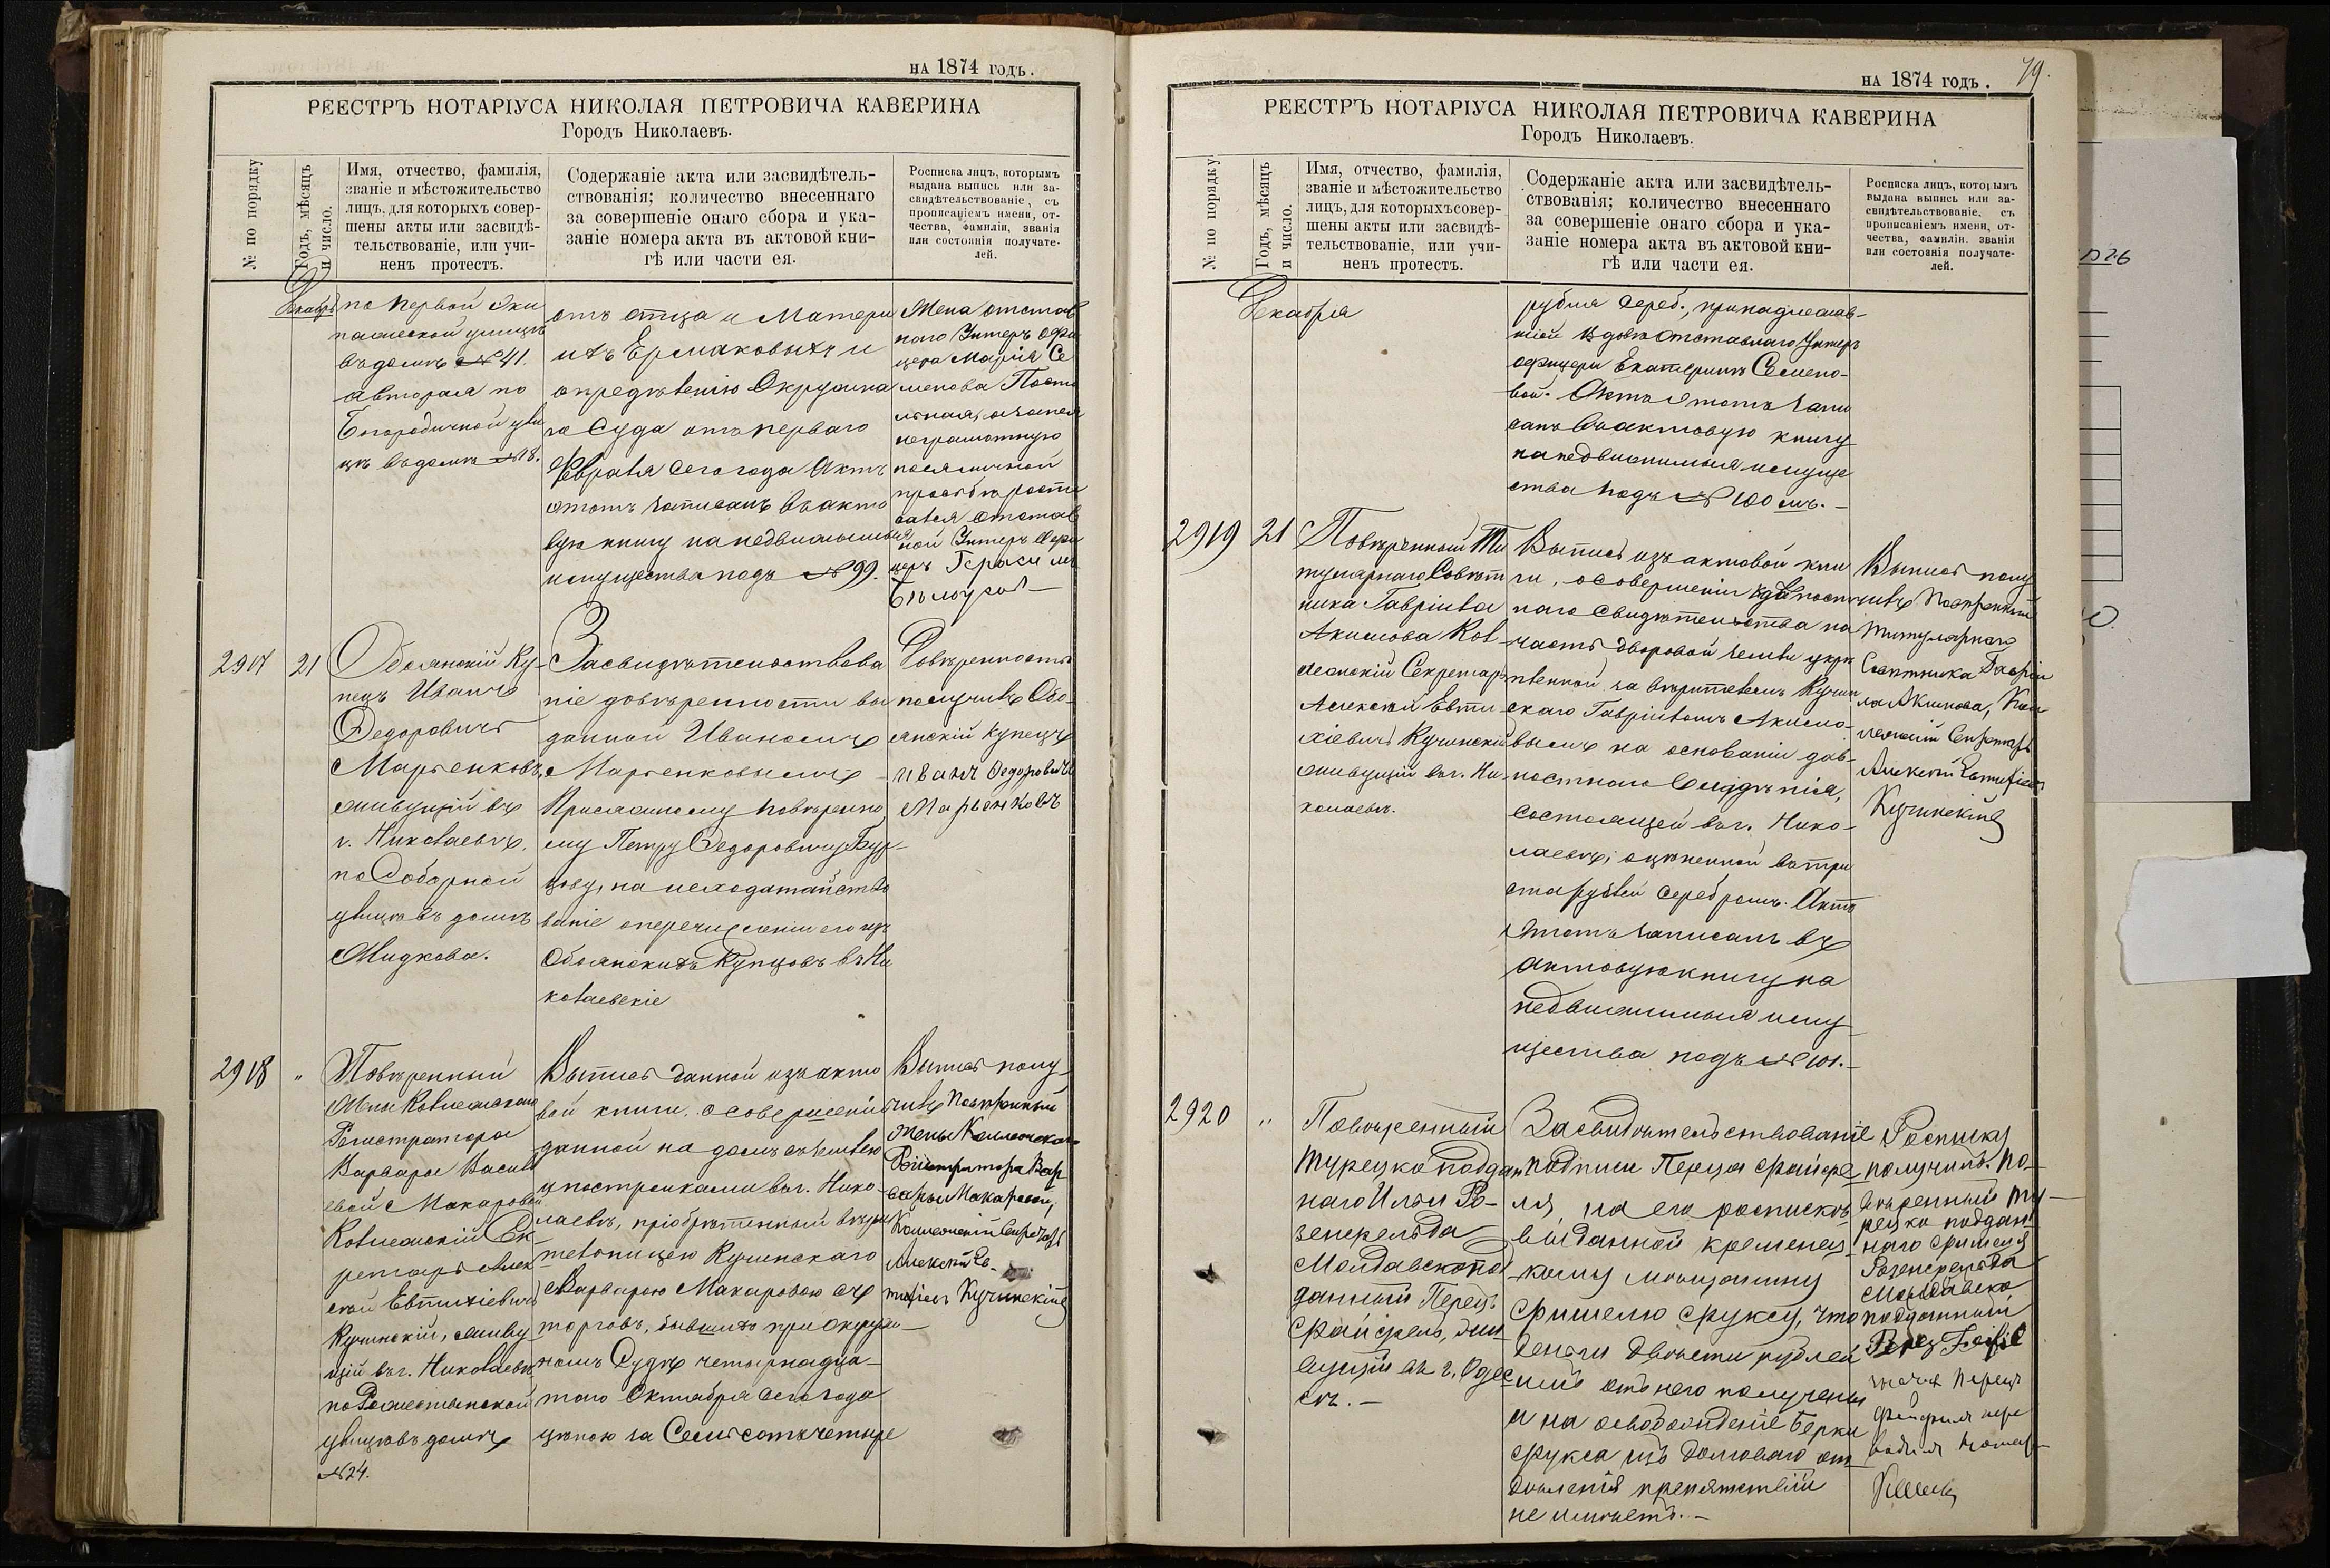 на 1874 годъ.
РЕЕСТРЪ НОТАРІУСА НИКОЛАЯ ПЕТРОВИЧА КАВЕРИНА
Городъ Николаевъ.
№ по порядку
Годъ, мѣсяцъ
и число.
Имя, отчество, фамилія,
званіе и мѣстожительство
лицъ, для которыхъ совер-
шены акты или засвидѣ-
тельствованіе, или учи-
ненъ протестъ.
Содержаніе акта или засвидѣтель-
ствованія; количество внесеннаго
за совершеніе онаго сбора и ука-
заніе номера акта въ актовой кни-
гѣ или части ея.
Росписка лицъ, которымъ
выдана выпись или за-
свидѣтельствованіе, съ
прописаніемъ имени, от-
чества, фамиліи, званія
или состоянія получате-
лей.
Декабрь
по первой Эки
пажеской улицѣ
въ домѣ № 41.
а вторая по
Богородичной ули
цѣ въ домѣ № 18.
отъ отца и Матери
ихъ Ермаковыхъ и
опредѣленію Окружна
го Суда отъ перваго
Февраля сего года Актъ
этотъ записанъ въ акто
вую книгу на недвижимыя
имущества подъ № 99.
Жена отстав
наго Унтеръ Офи
цера Марія Се
менова
неграмотную
по ея личной
прозьбѣ роспи
сался отстав
ной Унтеръ Офи
церъ Герасимъ
Бѣлоусъ
2917
21
Обоянскій Ку-
пецъ Иванъ
Федоровичъ
Марьенковъ,
живущій въ
г. Николаевѣ,
по Соборной
улицѣ въ домѣ
Мидкова.
Засвидѣтельствова
ніе довѣренности вы
данной Иваномъ
Марьенковымъ
Присяжному повѣренно
му Петру Федоровичу Бур-
цову, на исходатайство
ваніе о перечисленіи его изъ
Обоянскихъ Купцовъ въ Ни
колаевскіе
Довѣренность
получилъ Обо-
янскій купецъ
Иванъ Федоровичъ
Марьенковъ
2918
"
Повѣренный
Жены Коллежскаго
Регистратора
Варвары Василь
евой Макаровой
Коллежскій Сек-
ретарь Алек
сѣй Евтихіевичъ
Кучинскій, живу
щій въ г. Николаевѣ
по Рождественской
улицѣ въ домѣ
№ 24.
Выпись данной изъ акто
вой книги, о совершеніи
данной на домъ съ землею
и постройками въ г. Нико-
лаевѣ, пріобрѣтенный вѣри
тельницею Кучинскаго
Варварою Макаровою съ
торговъ, бывшихъ при Окруж-
номъ Судѣ четырнадца-
таго Октября сего года
цѣною за Семьсотъ четыре
Выпись полу-
чилъ Повѣренный
жены Коллежскаго
Регистратора Вар
вары Макаровой,
Коллежскій Секретарь
Алексѣй Ев-
тихіевъ Кучинскій
79.
на 1874 годъ.
РЕЕСТРЪ НОТАРІУСА НИКОЛАЯ ПЕТРОВИЧА КАВЕРИНА
Городъ Николаевъ.
№ по порядку
Годъ, мѣсяцъ
и число.
Имя, отчество, фамилія,
званіе и мѣстожительство
лицъ, для которыхъ совер-
шены акты или засвидѣ-
тельствованіе, или учи-
ненъ протестъ.
Содержаніе акта или засвидѣтель-
ствованія; количество внесеннаго
за совершеніе онаго сбора и ука-
заніе номера акта въ актовой кни-
гѣ или части ея.
Росписка лицъ, которымъ
выдана выпись или за-
свидѣтельствованіе, съ
прописаніемъ имени, от-
чества, фамиліи, званія
или состоянія получате-
лей.
Декабря
рубля сереб., принадлежав-
шій вдовѣ отставнаго Унтеръ
офицера Екатеринѣ Семено-
вой. Актъ этотъ запи
санъ въ актовую книгу
на недвижимыя имуще
ства подъ № 100мъ.-
2919
21
Повѣренный Ти
тулярнаго Совѣт
ника Гавріила
Акимова Кол-
лежскій Секретарь
Алексѣй Евти-
хіевичъ Кучинскій
живущій въ г. Ни-
колаевѣ.
Выпись изъ актовой кни
ги, о совершеніи давност
наго свидѣтельства на
часть дворовой земли укрѣ
пленной за вѣрителемъ Кучин
скаго Гавріиломъ Акимо-
вымъ на основаніи дав-
ностнаго владѣнія,
состоящей въ г. Нико-
лаевѣ, оцѣненной въ три
ста рублей серебромъ. Актъ
этотъ записанъ въ
актовую книгу на
недвижимыя иму-
щества подъ № 101.-
Выпись полу
чилъ Повѣренный
Титулярнаго
Совѣтника Гаврі
ла Акимова, Кол
лежскій Секретарь
Алексѣй Евтихіевъ
Кучинскій
2920
"
Повѣренный
Турецко поддан
наго Ильи Ро-
зенфельда
Молдавскопод
данный Перецъ
Файфель, жи
вущій въ г. Одес
сѣ.-
Засвидѣтельствованіе
подписи Переца Файфе
ля, на его роспискѣ
выданной кременец-
кому мѣщанину
Фишелю Фуксу, что
деньги двѣсти рублей
имъ отъ него получены
и на освобожденіе Берки
Фукса изъ долговаго от
дѣленія препятствій
не имѣетъ.-
Росписку
получилъ по-
вѣренный ту-
рецко поддан
наго
Розенфельда
Молдавско
подданный
Перецъ